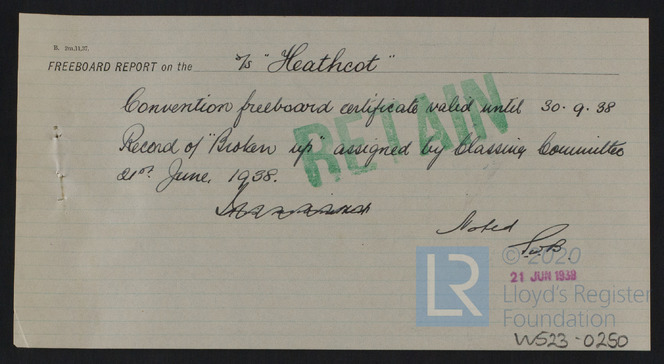 R. 2m.11.37.
FREEBOARD REPORT on the s/s "Heathcot"
Convention freeboard certificate valid until 30.9.38
Record of "Broken up" assigned by Classing Committee
21st June, 1938.
RETAIN
Noted
21 JUN 1938
LR
© 2020
Lloyd's Register
Foundation
W523-0250